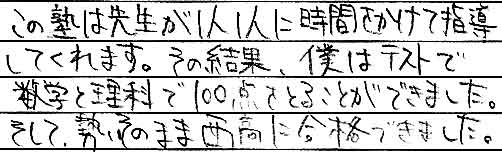 この塾は先生が1人1人に時間をかけて指導
してくれます。その結果、僕はテストで
数学と理科で100点をとることができました。
そして、勢いそのまま西高に合格できました。